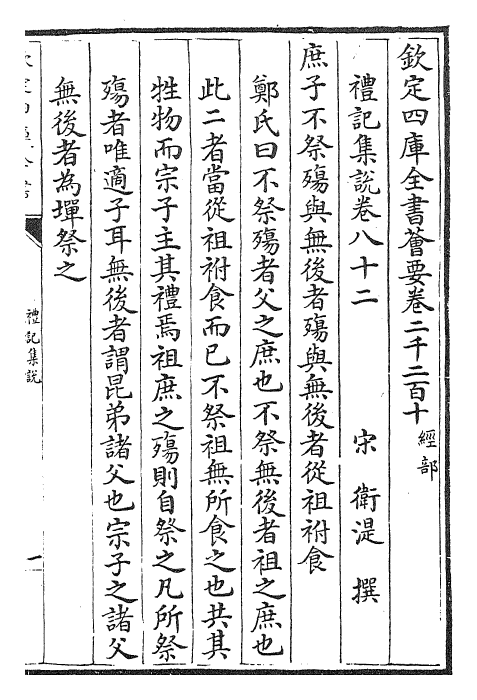 欽定四庫全書薈要卷二千二百十 經部
禮記集說卷八十二 宋 衛湜 撰
庶子不祭殤與無後者殤與無後者從祖祔食
鄭氏曰不祭殤者父之庶也不祭無後者祖之庶也
此二者當從祖祔食而已不祭祖無所食之也共其
牲物而宗子主其禮焉祖庶之殤則自祭之凡所祭
殤者唯適子耳無後者謂昆弟諸父也宗子之諸父
無後者為墠祭之
禮記集說
一